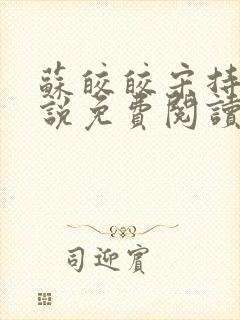 蘇皎皎宋持
說免費閱讀
司迎賓